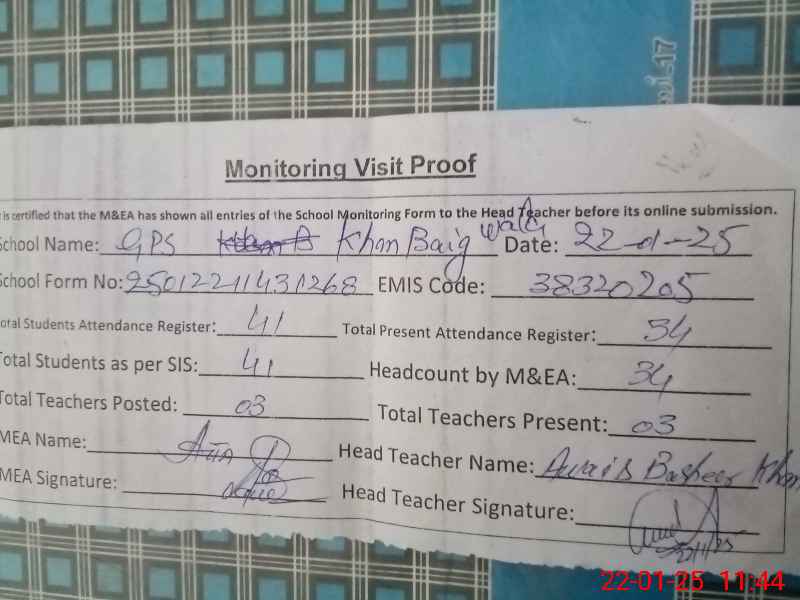 Monitoring Visit Proof
is certified that the M&EA has shown all entries of the School Monitoring Form to the Head Teacher before its online submission.
School Name: GPS Khan Baig wala Date: 22-01-25
School Form No: 250122114431268 EMIS Code: 38320205
Total Students Attendance Register: 41 Total Present Attendance Register: 34
Total Students as per SIS: 41 Headcount by M&EA: 34
Total Teachers Posted: 03 Total Teachers Present: 03
MEA Name: Head Teacher Name: Awais Basheer Khan
MEA Signature: Head Teacher Signature:
22-01-25 11:44